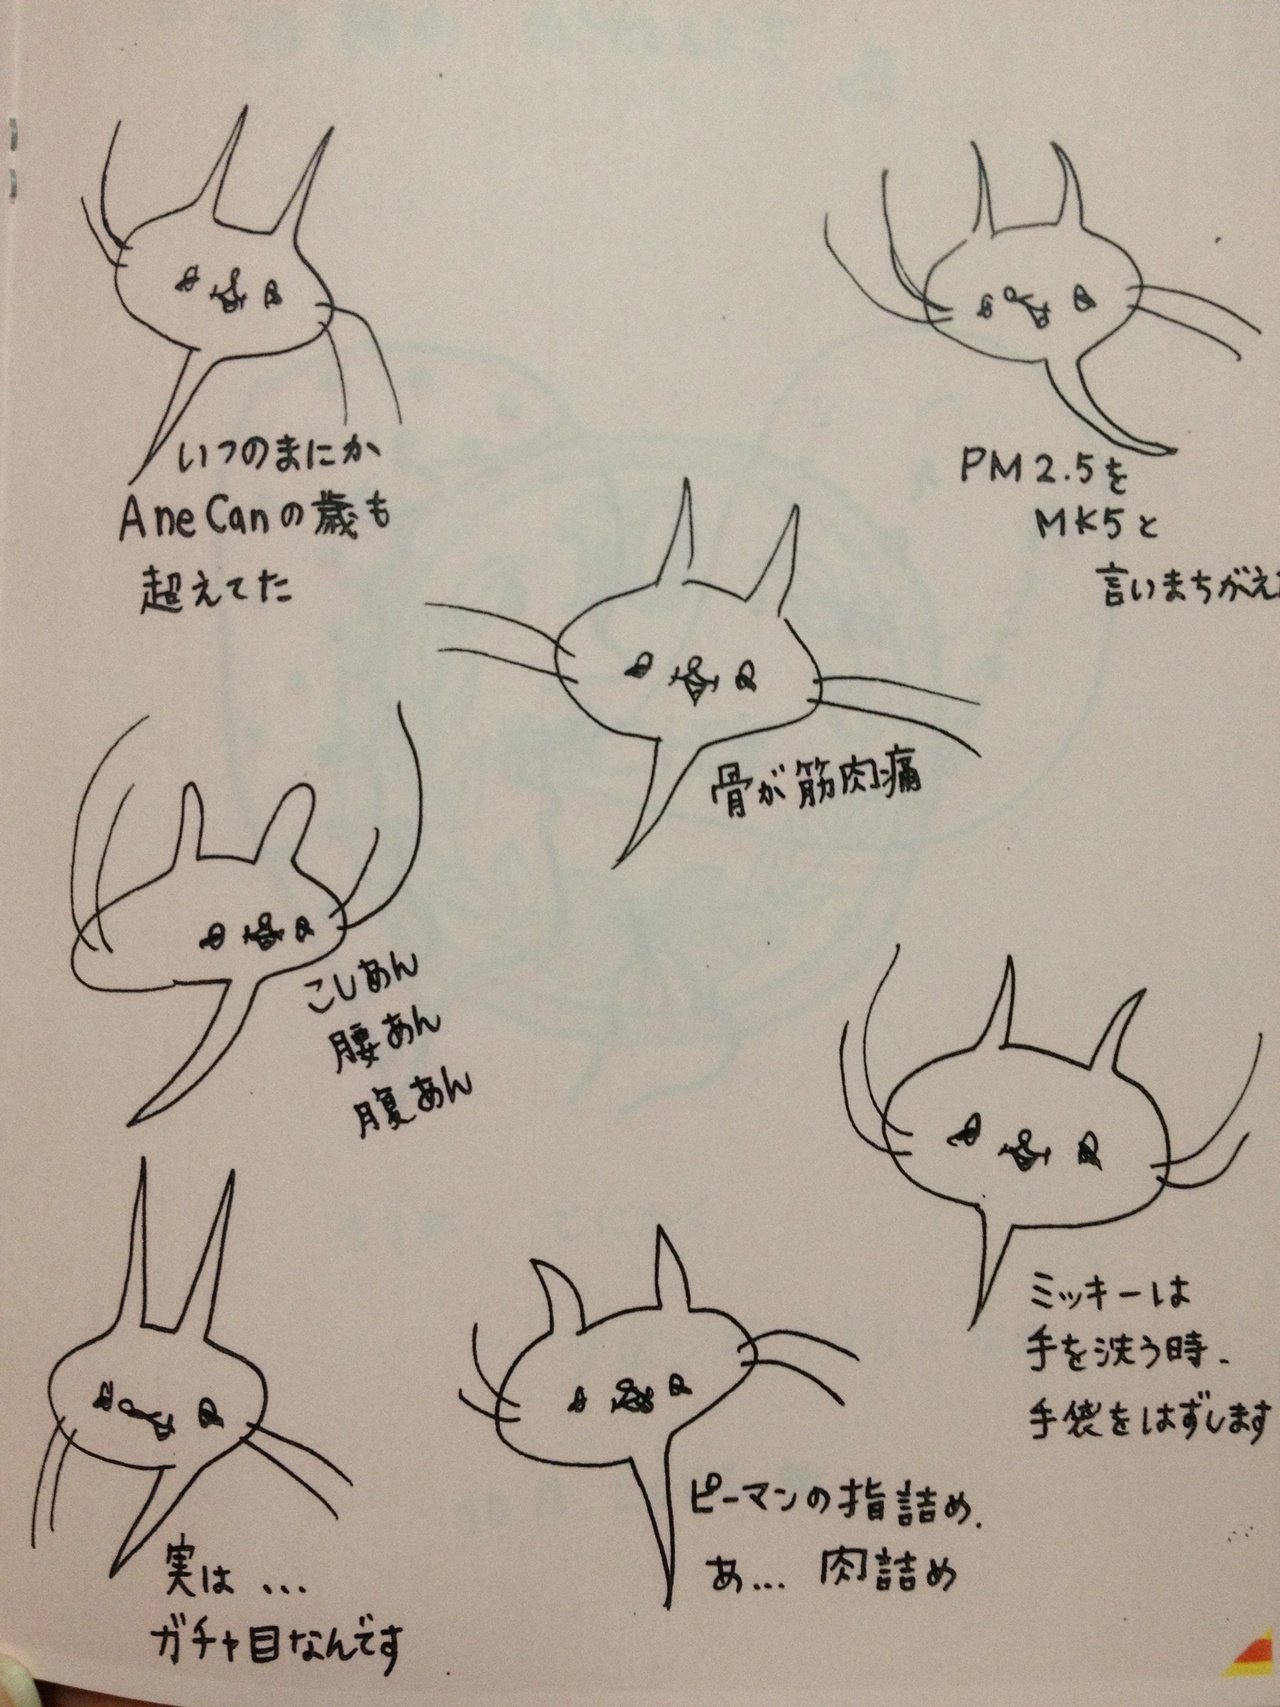 いつのまにか
AneCanの歳も
超えてた
PM2.5を
MK5と
言いまちがえた
骨が筋肉痛
こしあん
腰あん
腹あん
ミッキーは
手を洗う時、
手袋をはずします
実は...
ガチャ目なんです
ピーマンの指詰め、
あ... 肉詰め